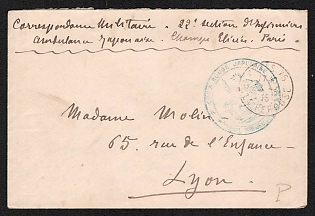 Correspondance Militaire. 22e section d'Infirmiers
Ambulance Japonaise. Champs Elisées. Paris
Madame Molin
65, rue de l'Enfance
Lyon.
P